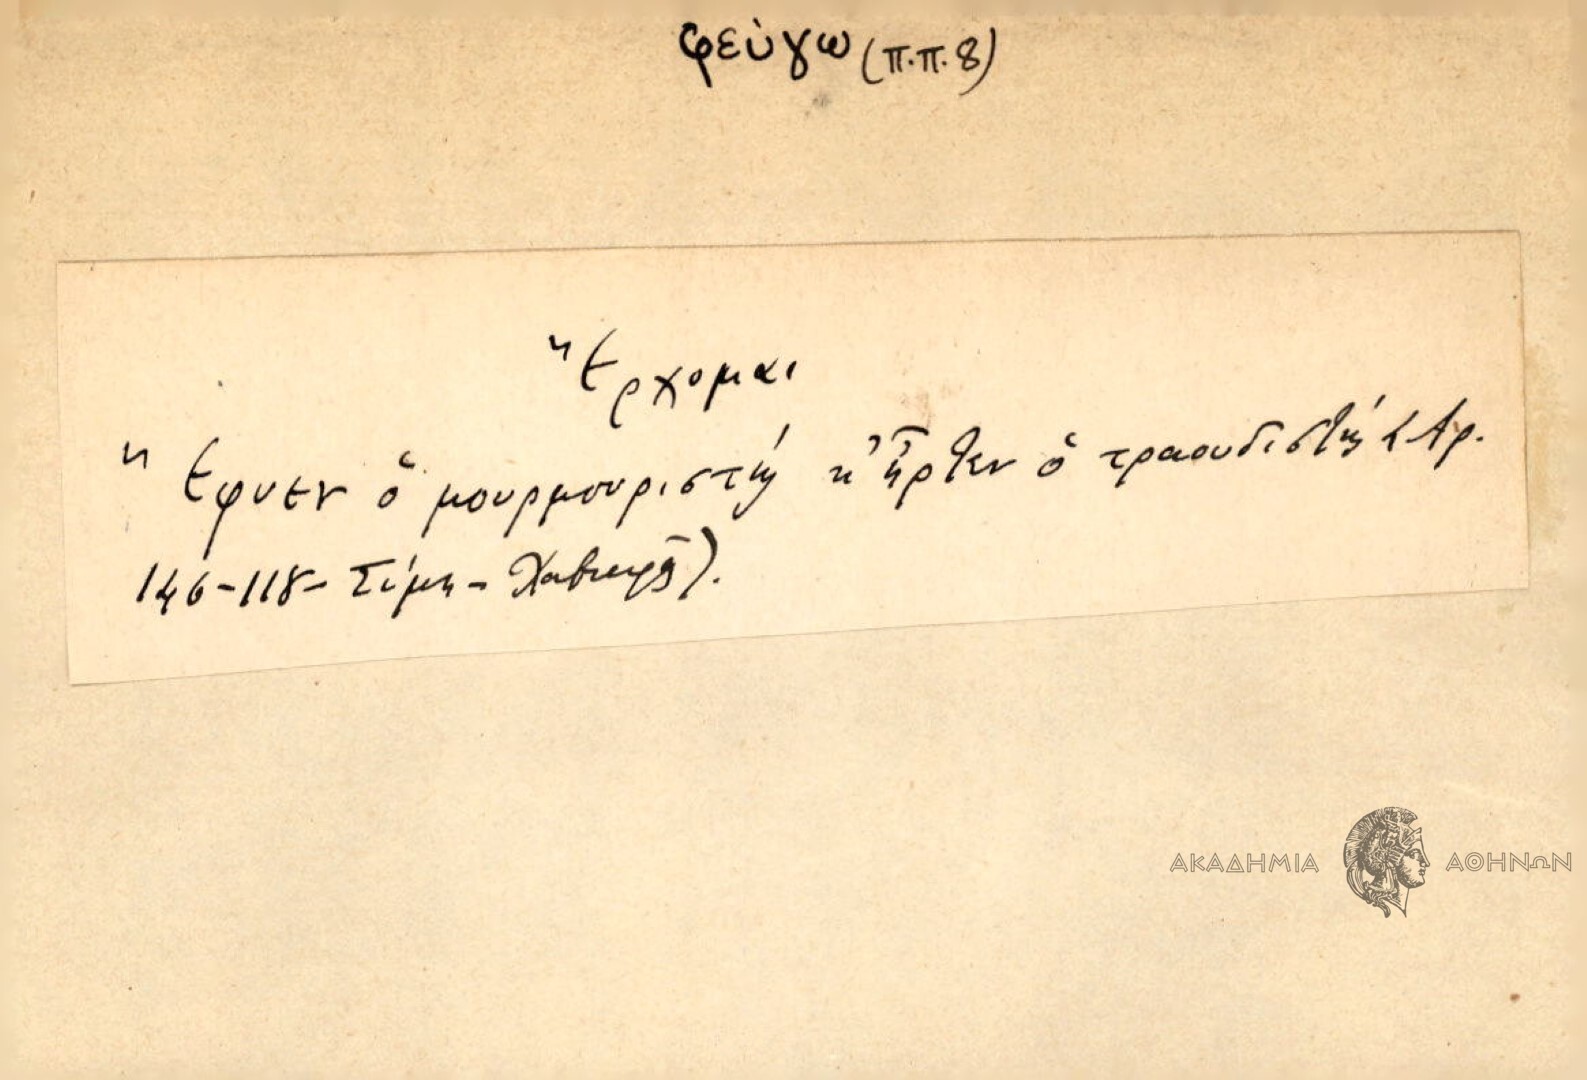 φεύγω (π.π. 8)
Ἔρχομαι
Ἔφυεν ὁ μουρμουριστής κ' ἦρτεν ὁ τραουδιστής (Ἀρ.
146-118- Σύμη - Χαβιαρᾶ).
ΑΚΑΔΗΜΙΑ ΑΘΗΝΩΝ